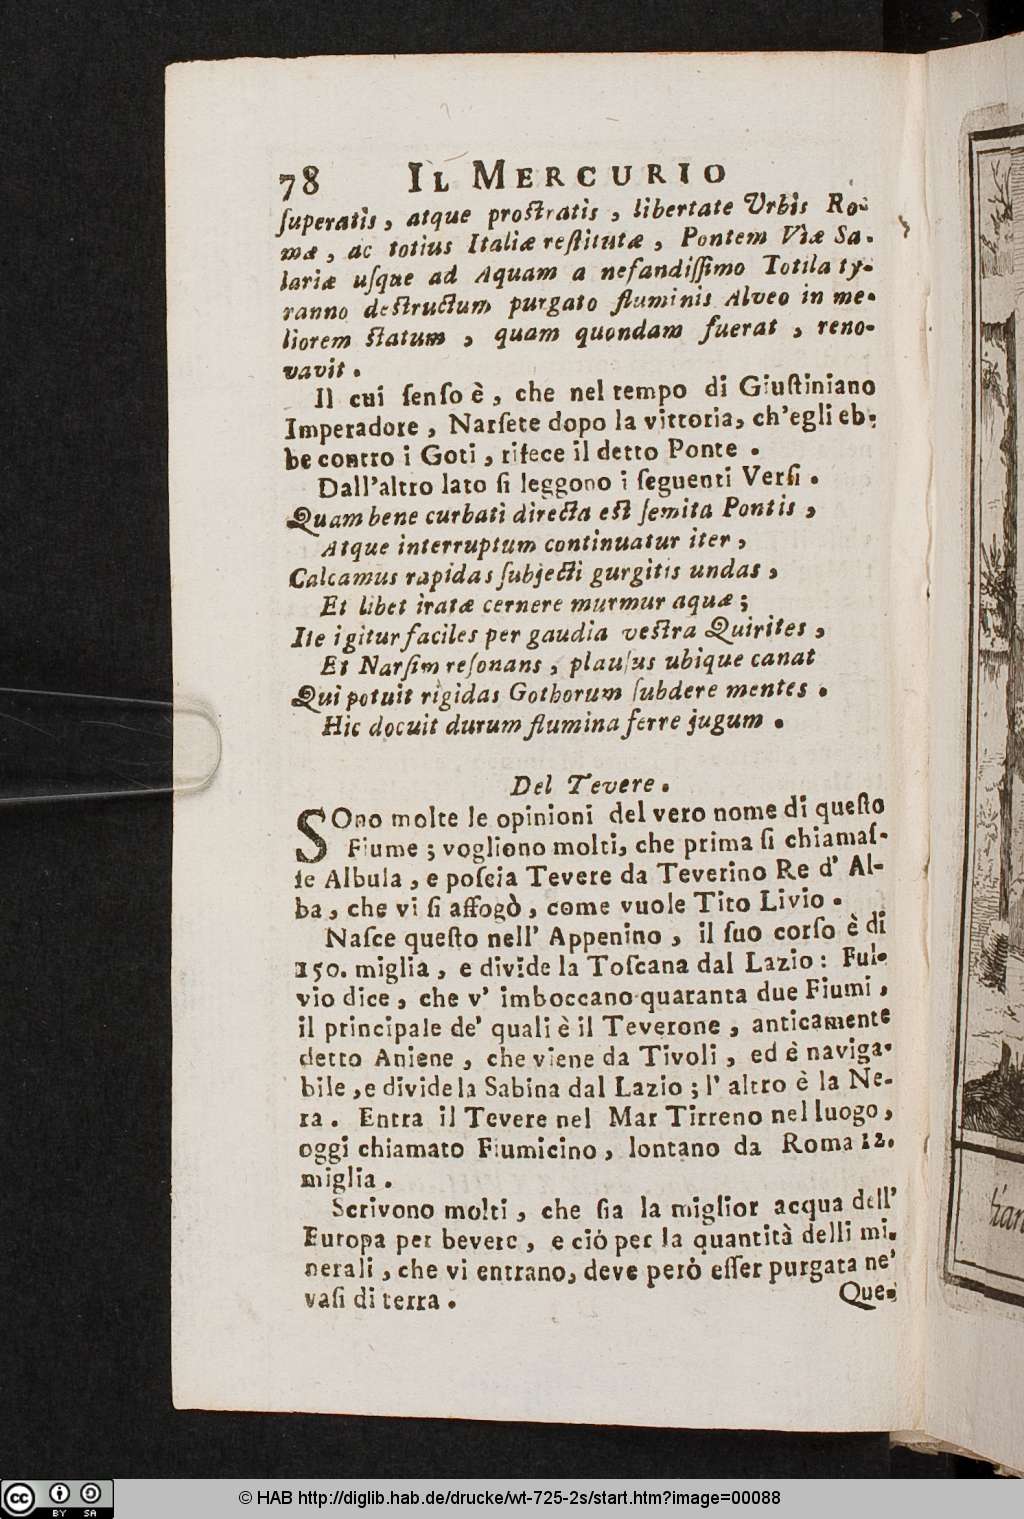 78 IL MERCURIO
ſuperatis, atque prostratis, libertate Vrbis Ro-
mæ, ac totius Italiæ reſtitutæ, Pontem Viæ Sa-
lariæ uſque ad Aquam a nefandiſſimo Totila ty-
ranno destructum purgato fluminis Alveo in me-
liorem statum, quam quondam fuerat, reno-
vavit.
Il cui ſenſo è, che nel tempo di Giuſtiniano
Imperadore, Narſete dopo la vittoria, ch'egli eb-
be contro i Goti, rifece il detto Ponte.
Dall'altro lato ſi leggono i ſeguenti Verſi.
Quam bene curbati directa est ſemita Pontis,
Atque interruptum continuatur iter,
Calcamus rapidas ſubjecti gurgitis undas,
Et libet iratæ cernere murmur aquæ;
Ite igitur faciles per gaudia vestra Quirites,
Et Narſim reſonans, plauſus ubique canat
Qui potuit rigidas Gothorum ſubdere mentes.
Hic docuit durum flumina ferre jugum.
Del Tevere.
SOno molte le opinioni del vero nome di queſto
Fiume; vogliono molti, che prima ſi chiamaſ-
ſe Albula, e poſcia Tevere da Teverino Re d' Al-
ba, che vi ſi affogò, come vuole Tito Livio.
Naſce queſto nell' Appenino, il ſuo corſo è di
150. miglia, e divide la Toſcana dal Lazio: Ful-
vio dice, che v' imboccano quaranta due Fiumi,
il principale de' quali è il Teverone, anticamente
detto Aniene, che viene da Tivoli, ed è naviga-
bile, e divide la Sabina dal Lazio; l' altro è la Ne-
ra. Entra il Tevere nel Mar Tirreno nel luogo,
oggi chiamato Fiumicino, lontano da Roma 12.
miglia.
Scrivono molti, che ſia la miglior acqua dell'
Europa per bevere, e ciò per la quantità delli mi-
nerali, che vi entrano, deve però eſſer purgata ne'
vaſi di terra.
Que-
BY SA
© HAB http://diglib.hab.de/drucke/wt-725-2s/start.htm?image=00088